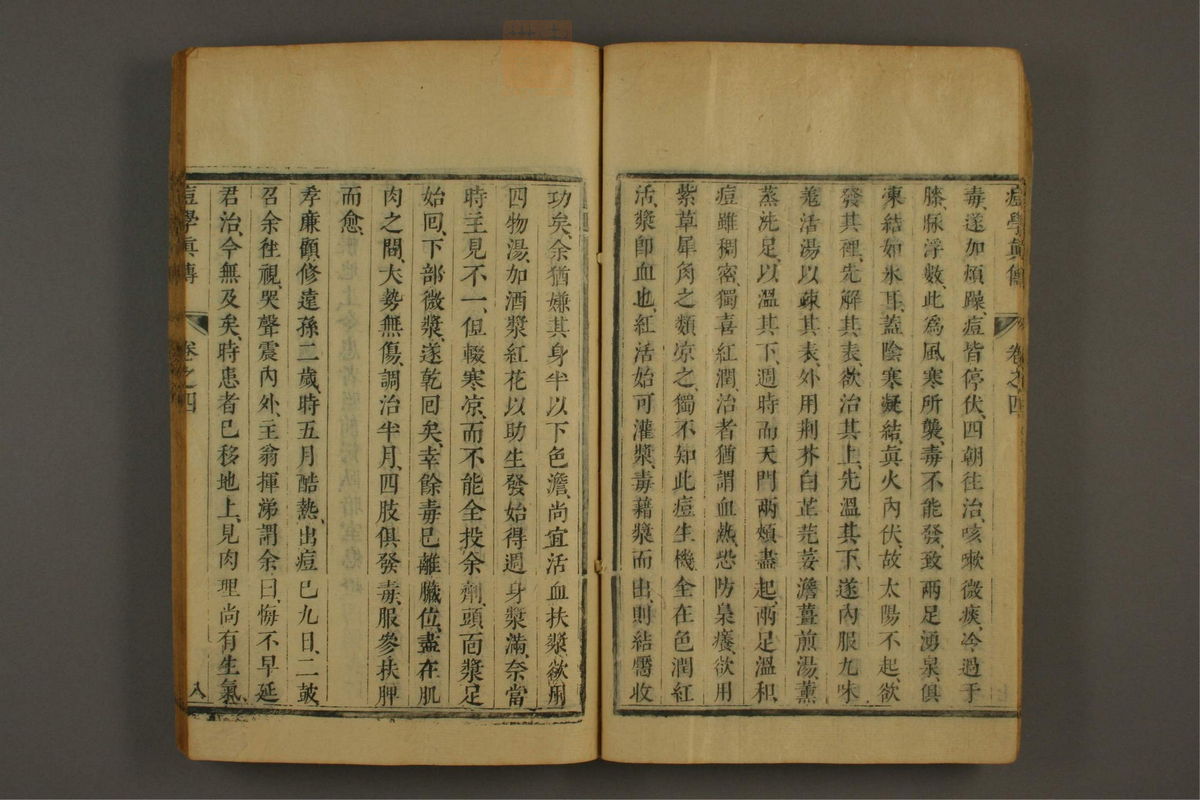 痘學眞傳 卷之四
毒遂加煩躁痘皆停伏四朝往治咳嗽微痰冷過于
膝脉浮數此爲風寒所襲毒不能發致兩足湧泉俱
凍結如氷耳蓋陰寒凝結眞火內伏故太陽不起欲
發其裡先解其表欲治其上先溫其下遂內服九味
羗活湯以疎其表外用荆芥白芷芫荽澹薑煎湯薰
蒸洗足以溫其下週時而天門兩頰盡起兩足溫和
痘雖稠密獨喜紅潤治者猶謂血熱恐防梟癢欲用
紫草犀角之類凉之獨不知此痘生機全在色潤紅
活漿卽血也紅活始可灌漿毒藉漿而出則結靨收
功矣余猶嫌其身半以下色澹尚宜活血扶漿欲用
四物湯加酒漿紅花以助生發始得週身漿滿奈當
時主見不一但輟寒凉而不能全投余劑頭面漿足
始回下部微漿遂乾回矣幸餘毒已離臟位盡在肌
肉之間大勢無傷調治半月四肢俱發毒服參扶脾
而愈
孝廉顧修遠孫二歲時五月酷熱出痘已九日二鼓
召余徃視哭聲震內外主翁揮涕謂余曰悔不早延
君治今無及矣時患者已移地上見肉理尚有生氣
痘學眞傳 卷之四 八